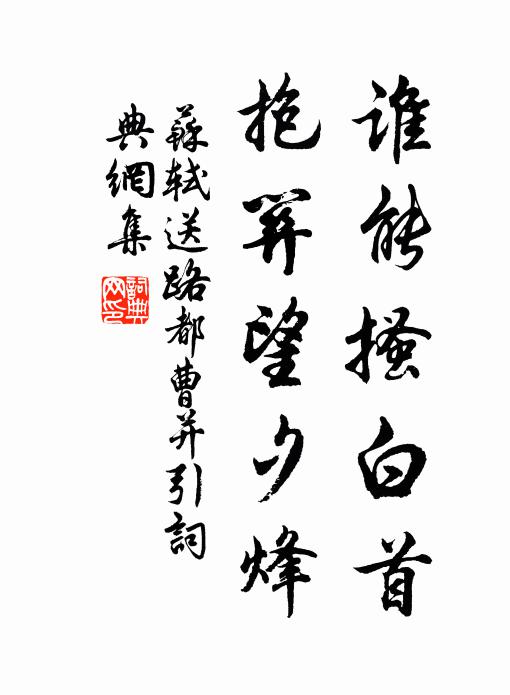 谁能搔白首
抱关望夕烽
蘇軾送路都曹并引詞
典網集
詞典网印